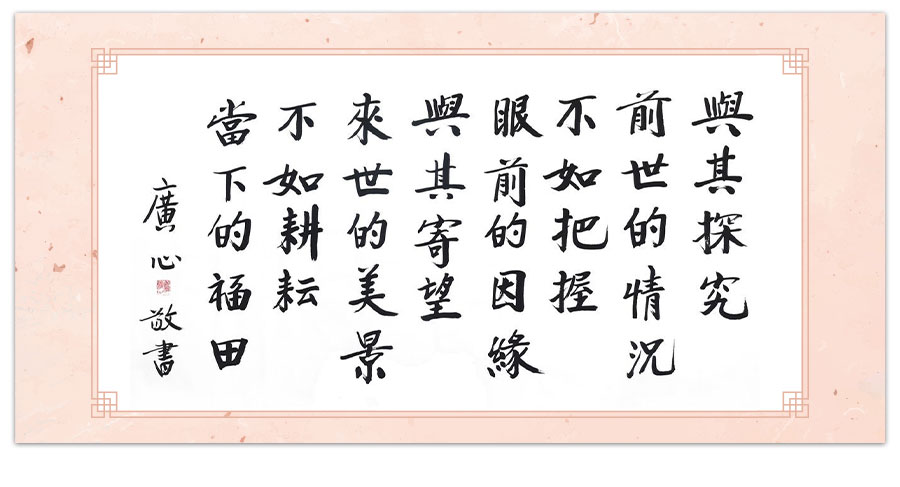 與其探究
前世的情況
不如把握
眼前的因緣
與其寄望
來世的美景
不如耕耘
當下的福田
廣心
敬書